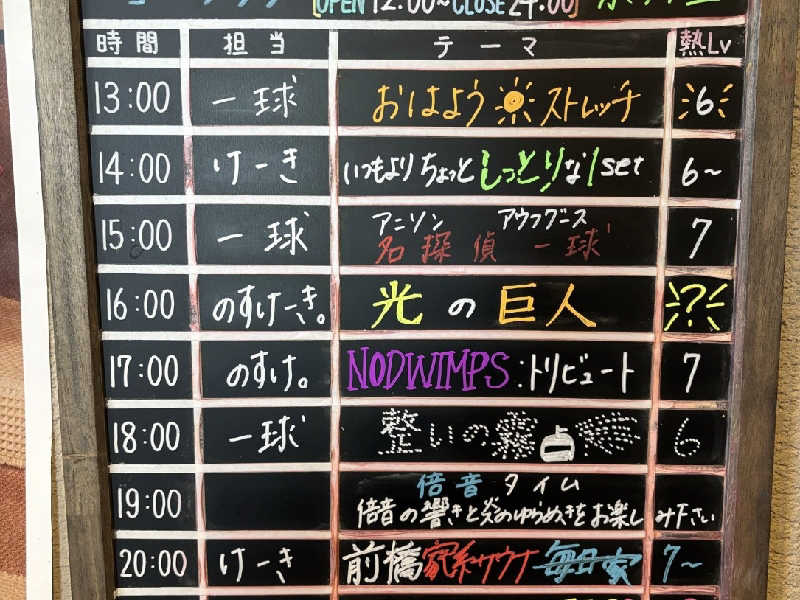 OPEN 12:00~CLOSE 24:00
時間 担当 テーマ 熱Lv
13:00 一球 おはようストレッチ 6
14:00 けーき いつもよりちょっとしっとりな1set 6~
15:00 一球 アニソン アウフグース 名探偵一球 7
16:00 のすけーき。 光の巨人 ?
17:00 のすけ。 NODWIMPS:トリビュート 7
18:00 一球 整いの霧 6
19:00 倍音タイム
倍音の響きと炎のゆらめきをお楽しみ下さい
20:00 けーき 前橋家系サウナ 毎日家 7~